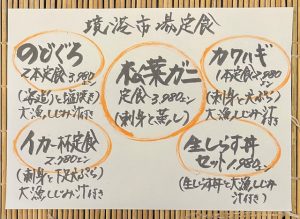 境港市場定食
のどぐろ
2本定食3,980エン
(煮魚と塩焼き)
大漁しじみ汁付
松葉ガニ
定食 3,980エン
(刺身と蒸し)
カワハギ
1本定食2,980エン
(刺身と天ぷら)
大漁しじみ汁付き
イカ一杯定食
2,980エン
(刺身と下足天ぷら)
大漁しじみ汁付き
生しらす丼
セット1,980エン
(生しらす丼と大漁しじみ
汁付き)